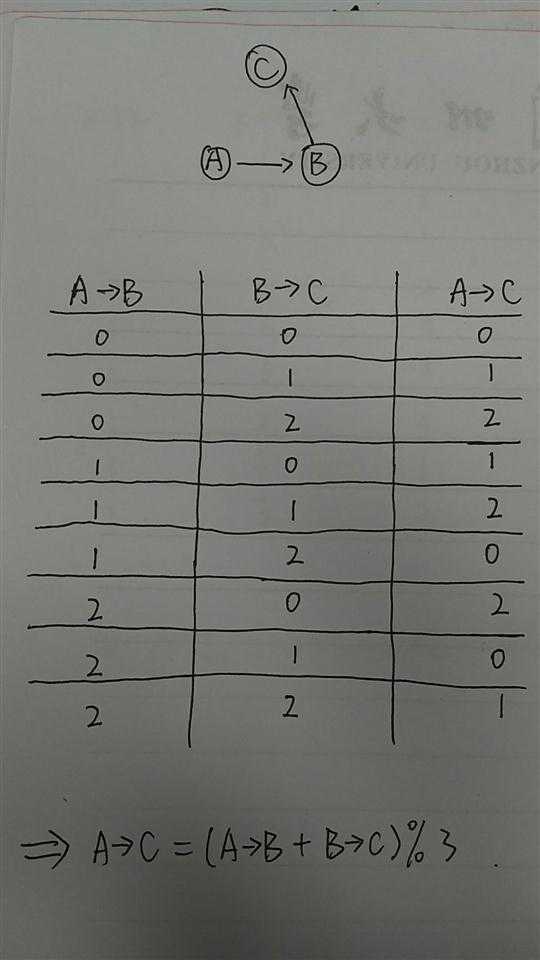 C
A → B
A→B B→C A→C
0 0 0
0 1 1
0 2 2
1 0 1
1 1 2
1 2 0
2 0 2
2 1 0
2 2 1
⇒ A→C = (A→B + B→C)%3 .